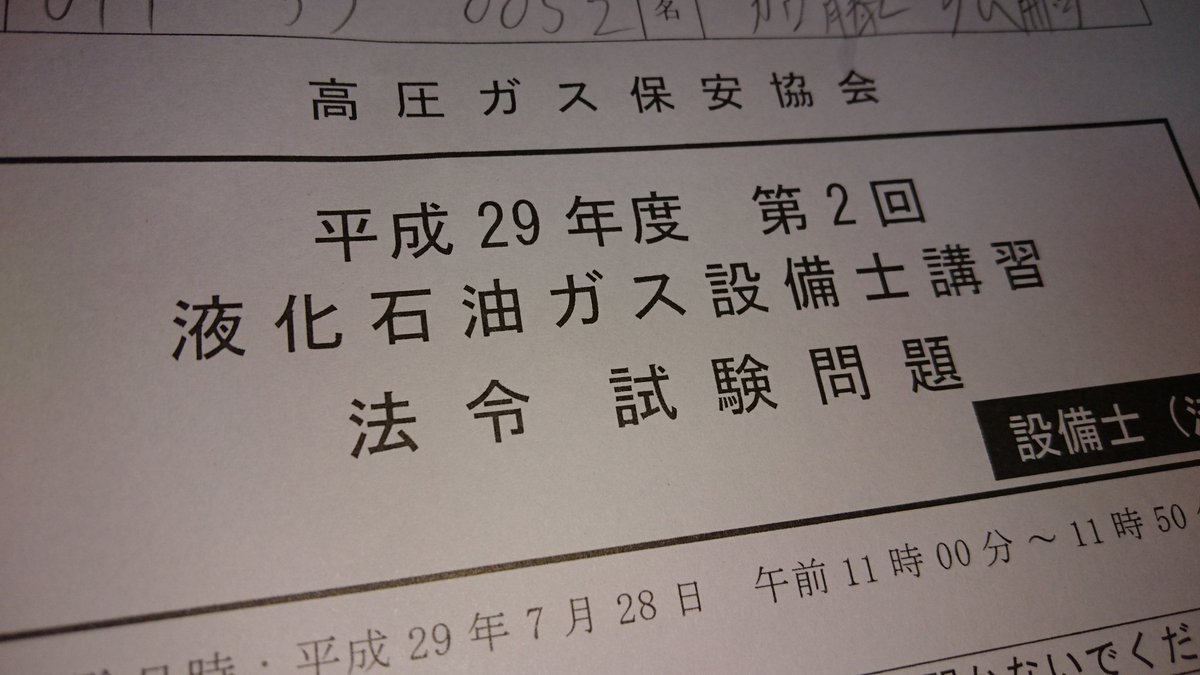 0052 名 加藤
高圧ガス保安協会
平成29年度 第2回
液化石油ガス設備士講習
法令 試験問題
設備士（法
日時：平成29年7月28日 午前11時00分～11時50分
かないでくだ